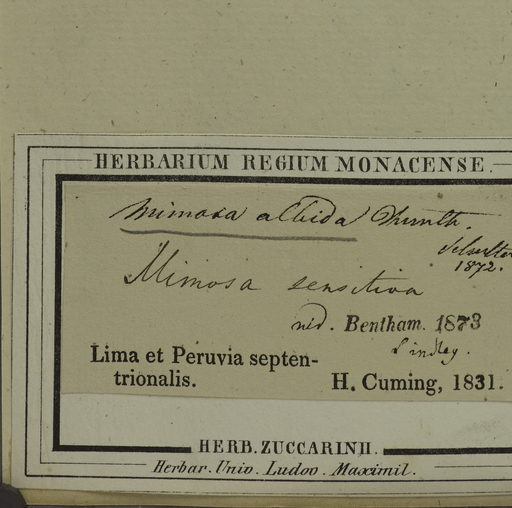 HERBARIUM REGIUM MONACENSE.
Mimosa albida Kunth.
1872.
Mimosa sensitiva
vid. Bentham. 1873
Lindley.
Lima et Peruvia septen-
trionalis.
H. Cuming, 1831.
HERB. ZUCCARINII.
Herbar. Univ. Ludov. Maximil.